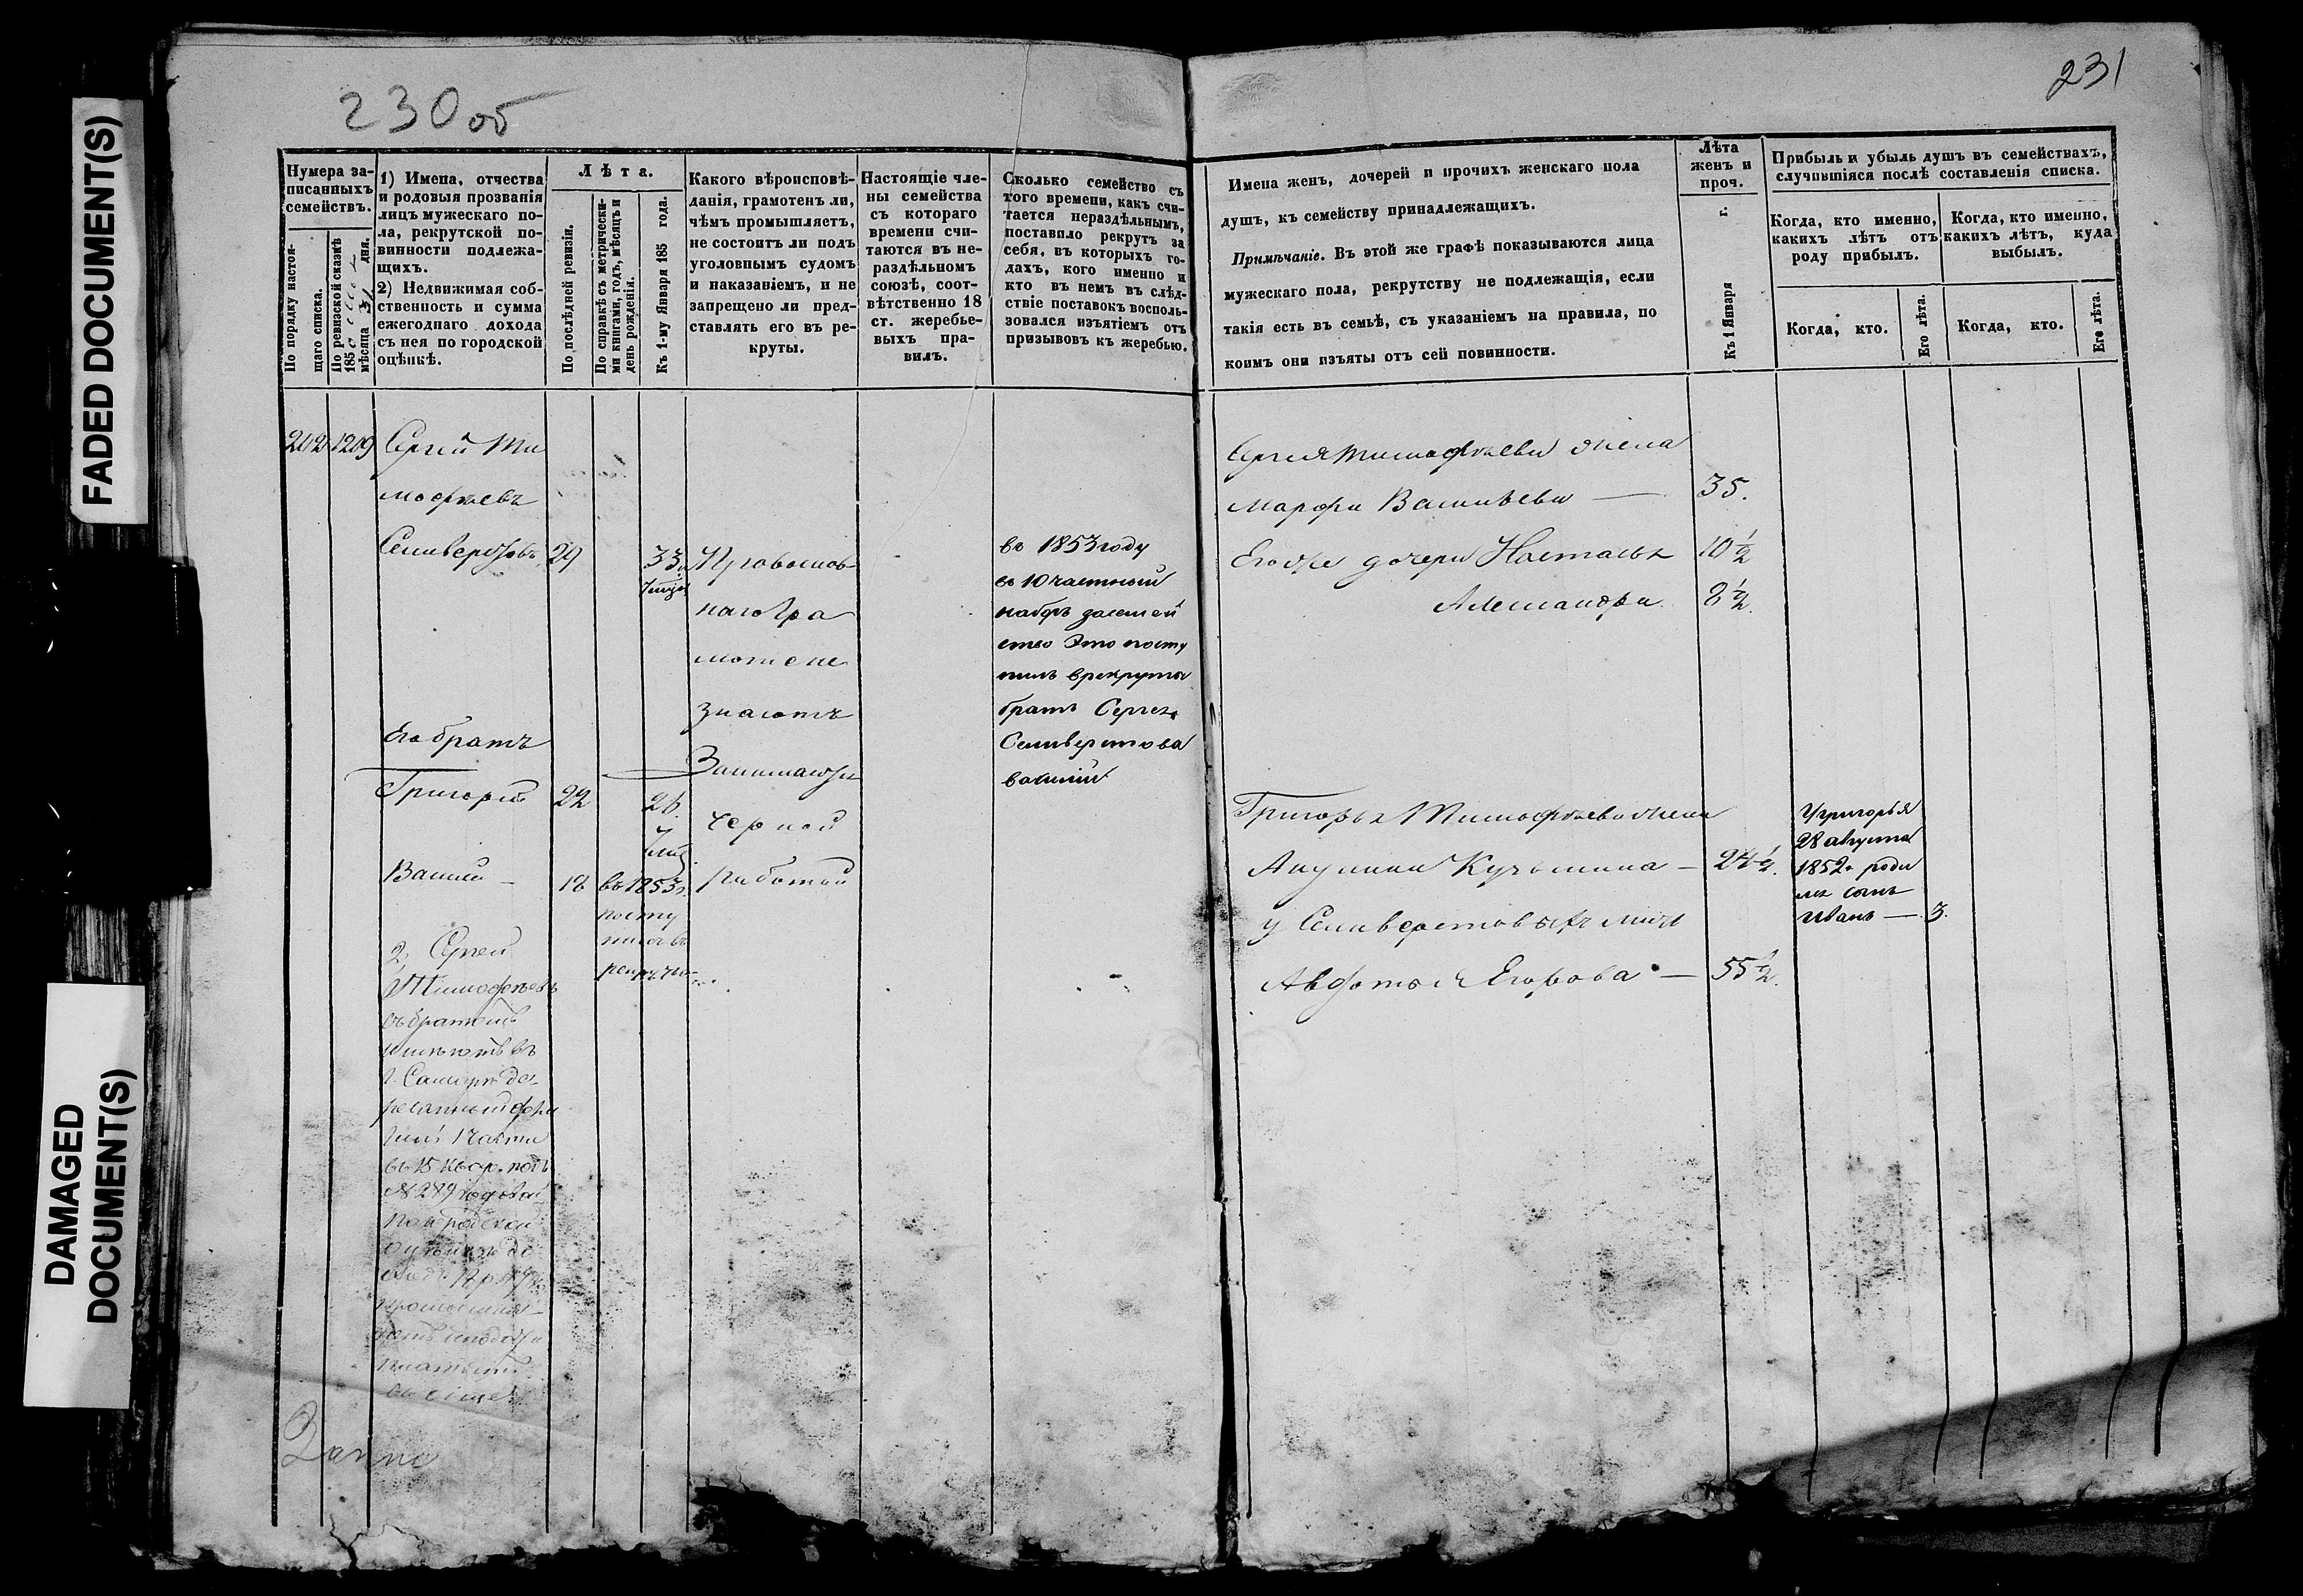 FADED DOCUMENT(S)
DAMAGED
DOCUMENT(S)
230 об
Нумера за-
писанныхъ
семействъ.
По порядку настоя-
щаго списка.
По ревизской сказкѣ
185
мѣсяца 31 дня.
1) Имена, отчества
и родовыя прозванія
лицъ мужескаго по-
ла, рекрутской по-
винности подлежа-
щихъ.
2) Недвижимая соб-
ственность и сумма
ежегоднаго дохода
съ нея по городской
оцѣнкѣ.
Лѣта.
По послѣдней ревизіи.
По справкѣ съ метрически-
ми книгами, годъ, мѣсяцъ и
день рожденія.
Къ 1-му Января 185 года.
Какого вѣроисповѣ-
данія, грамотенъ ли,
чѣмъ промышляетъ,
не состоитъ ли подъ
уголовнымъ судомъ
и наказаніемъ, и не
запрещено ли пред-
ставлять его въ ре-
круты.
Настоящіе чле-
ны семейства
съ котораго
времени счи-
таются въ не-
раздѣльномъ
союзѣ, соот-
вѣтственно 18
ст. жеребье-
выхъ пра-
вилъ.
Сколько семейство съ
того времени, какъ счи-
тается нераздѣльнымъ,
поставило рекрутъ за
себя, въ которыхъ го-
дахъ, кого именно и
кто въ немъ въ слѣд-
ствіе поставокъ восполь-
зовался изъятіемъ отъ
призывовъ къ жеребью.
202 1209 Сергей Ти
мофѣевъ
Селиверстовъ 29 33
Православ
наго Гра
мотѣ не
знаютъ
Занимаются
черной
работой
въ 1853 году
въ 10 частный
наборъ за семей
ство это посту
пилъ в рекруты
братъ Сергея
Селиверстова
Василий
Его братъ
Григорій 22 26.
7
Василий — 18 въ 1853 г.
посту
пилъ въ
рекруты
2, Сергей
Тимофѣевъ
съ братомъ
имѣютъ въ
г. Самарѣ де-
ревянный
1 части
въ 15 квар. подъ
№ 289
по городской
оцѣнкѣ
231
Имена женъ, дочерей и прочихъ женскаго пола
душъ, къ семейству принадлежащихъ.
Примѣчаніе. Въ этой же графѣ показываются лица
мужескаго пола, рекрутству не подлежащія, если
такія есть въ семьѣ, съ указаніемъ на правила, по
коимъ они изъяты отъ сей повинности.
Лѣта
женъ и
проч.
Къ 1 Января г.
Прибыль и убыль душъ въ семействахъ,
случившіяся послѣ составленія списка.
Когда, кто именно,
какихъ лѣтъ отъ
роду прибылъ.
Когда, кто именно,
какихъ лѣтъ, куда
выбылъ.
Когда, кто.
Его лѣта.
Когда, кто.
Его лѣта.
Сергея Тимофѣева жена
Марфа Васильева — 35.
Его же дочери Наталья 10 ½
Александра 8 ½.
Григорья Тимофѣева жена
Акулина Кузьмина — 24 ½.
у Селиверстовыхъ мать
Авдотья Егорова — 55 ½.
У Григорья
28 августа
1852 г роди
ля сынъ
Иванъ — 3.